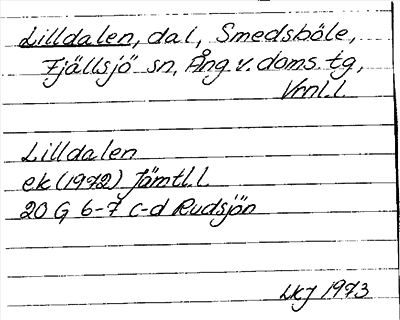 Lilldalen, dal, Smedsböle,
Fjällsjö sn, Ång v. doms. tg,
Vrnl.l
Lilldalen
ek (1972) Jämtl.l.
20 G 6-7 c-d Rudsjön
1973